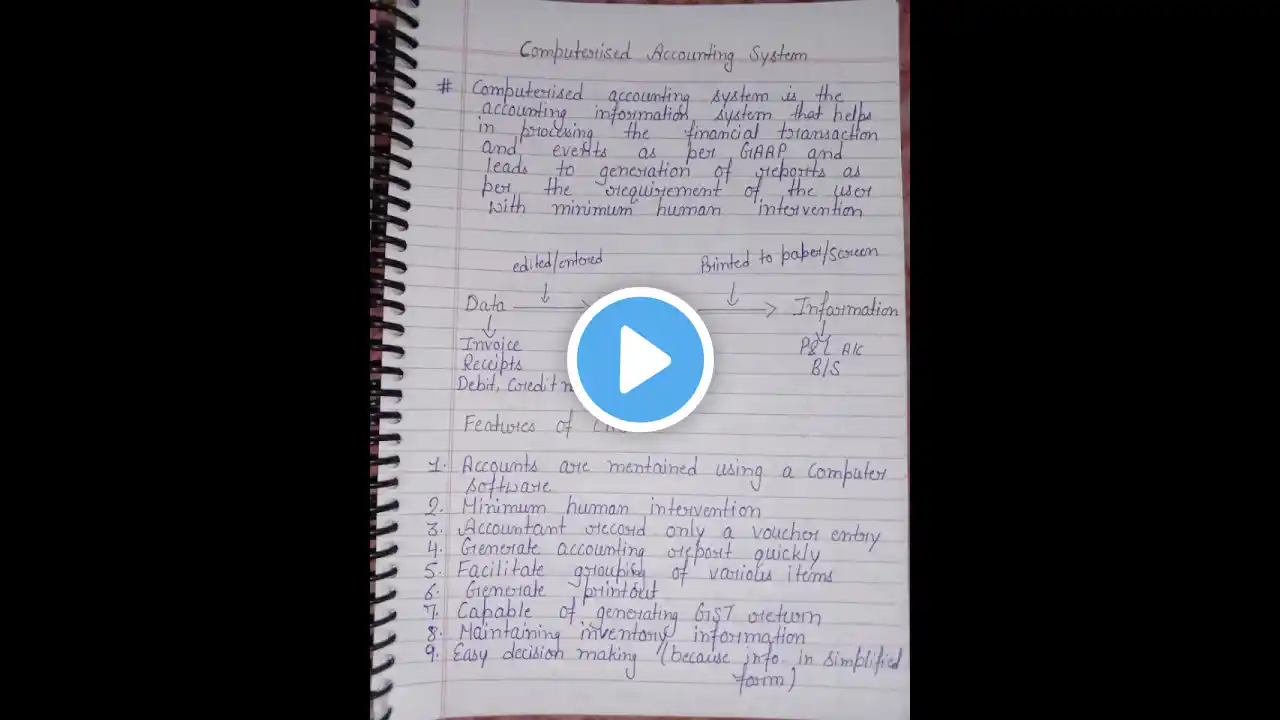 Computerised Accounting System
# Computerised accounting system is the
accounting information system that helps
in procesing the financial transaction
and events as per GAAP and
leads to generation of reports as
per the requirement of the user
with minimum human intervention
edited/entered Printed to paper/screen
Data Information
Invoice P&L A/c
Receipts B/S
Debit, Credit
Features of
1. Accounts are mentained using a computer
software
2. Minimum human intervention
3. Accountant record only a voucher entry
4. Generate accounting report quickly
5. Facilitate grouping of various items
6. Generate printout
7. Capable of generating GST return
8. Maintaining inventory information
9. Easy decision making (because info. in simplified
form)